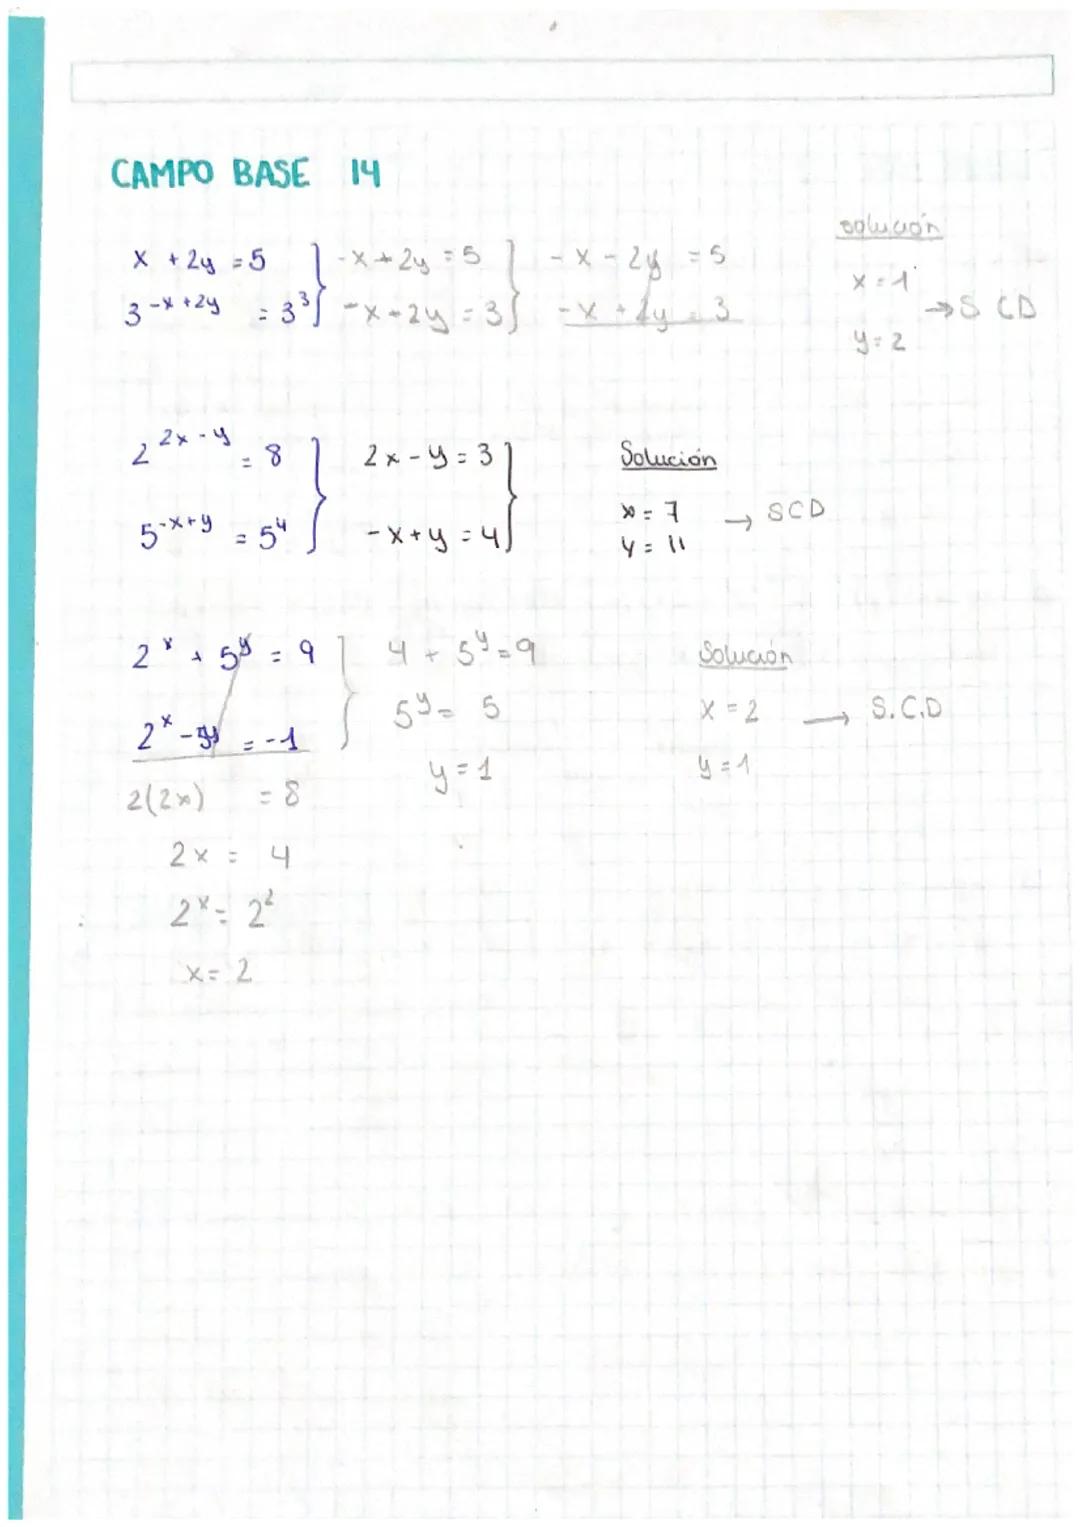 CAMPO BASE 14
x + 2y = 5 } -x + 2y = 5 } -x - 2y = 5
3^(-x+2y) = 3³ } -x + 2y = 3 } -x + 2y = 3
solución
x = 1
→ S CD
y = 2
2^(2x-y) = 8 } 2x - y = 3 }
5^(-x+y) = 5⁴ } -x + y = 4 }
Solución
x = 7 → SCD
y = 11
2^x + 5^y = 9 } 4 + 5^y = 9
2^x - 5^y = -1 } 5^y = 5
2(2x) = 8 y = 1
2x = 4
2^x = 2²
x = 2
Solución
x = 2 → S.C.D
y = 1